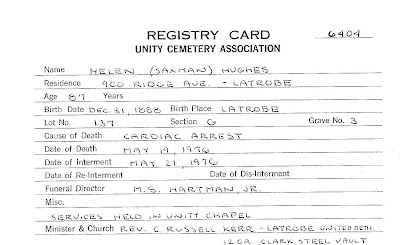 REGISTRY CARD 6404
UNITY CEMETERY ASSOCIATION
Name HELEN (SAXMAN) HUGHES
Residence 900 RIDGE AVE. - LATROBE
Age 87 Years
Birth Date DEC. 31, 1888 Birth Place LATROBE
Lot No. 137 Section G Grave No. 3
Cause of Death CARDIAC ARREST
Date of Death MAY 19, 1976
Date of Interment MAY 21, 1976
Date of Re-Interment Date of Dis-Interment
Funeral Director M.S. HARTMAN, JR.
Misc.
SERVICES HELD IN UNITY CHAPEL
Minister & Church REV. C. RUSSELL KERR - LATROBE UNITED METH.
12 GA. CLARK STEEL VAULT